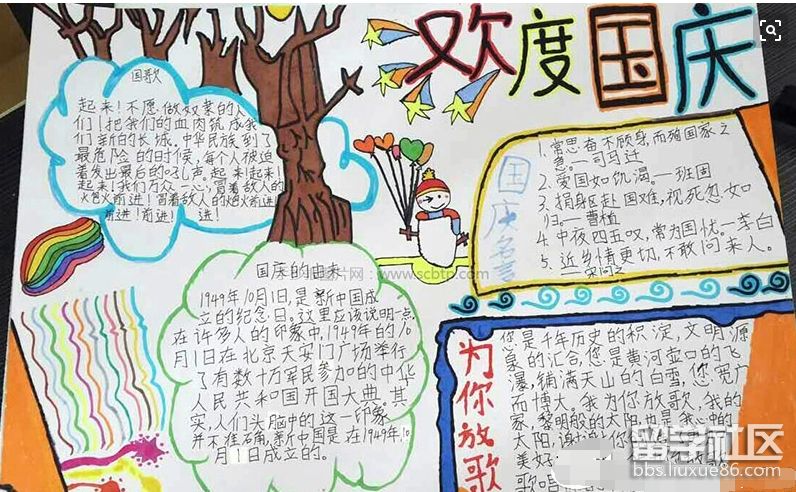 欢度国庆
国歌
起来！不愿做奴隶的人
们！把我们的血肉筑成我
们新的长城。中华民族到了
最危险的时候，每个人被迫
着发出最后的吼声。起来！起来！
起来！我们万众一心，冒着敌人的
炮火前进！冒着敌人的炮火前进！
前进！前进！进！
国庆的由来
1949年10月1日，是新中国成
立的纪念日。这里应该说明一点，
在许多人的印象中，1949年的10
月1日在北京天安门广场举行
了有数十万军民参加的中华
人民共和国开国大典。其
实，人们头脑中的这一印象
并不准确，新中国是在1949年10
月1日成立的。
国庆名言
1、常思奋不顾身，而殉国家之
急。—司马迁
2、爱国如饥渴。—班固
3、捐躯赴国难，视死忽如
归。—曹植
4、中夜四五叹，常为国忧。—李白
5、近乡情更切，不敢问来人。
—宋问之
为你放歌
您是千年历史的积淀，文明源
泉的汇合，您是黄河壶口的飞
瀑，铺满天山的白雪，您宽广
而博大。我为你放歌，我的
家，黎明般的太阳也是我心中的
太阳，谢谢你
美好
歌唱
www.scbtp.com
留学社区
bbs.liuxue86.com